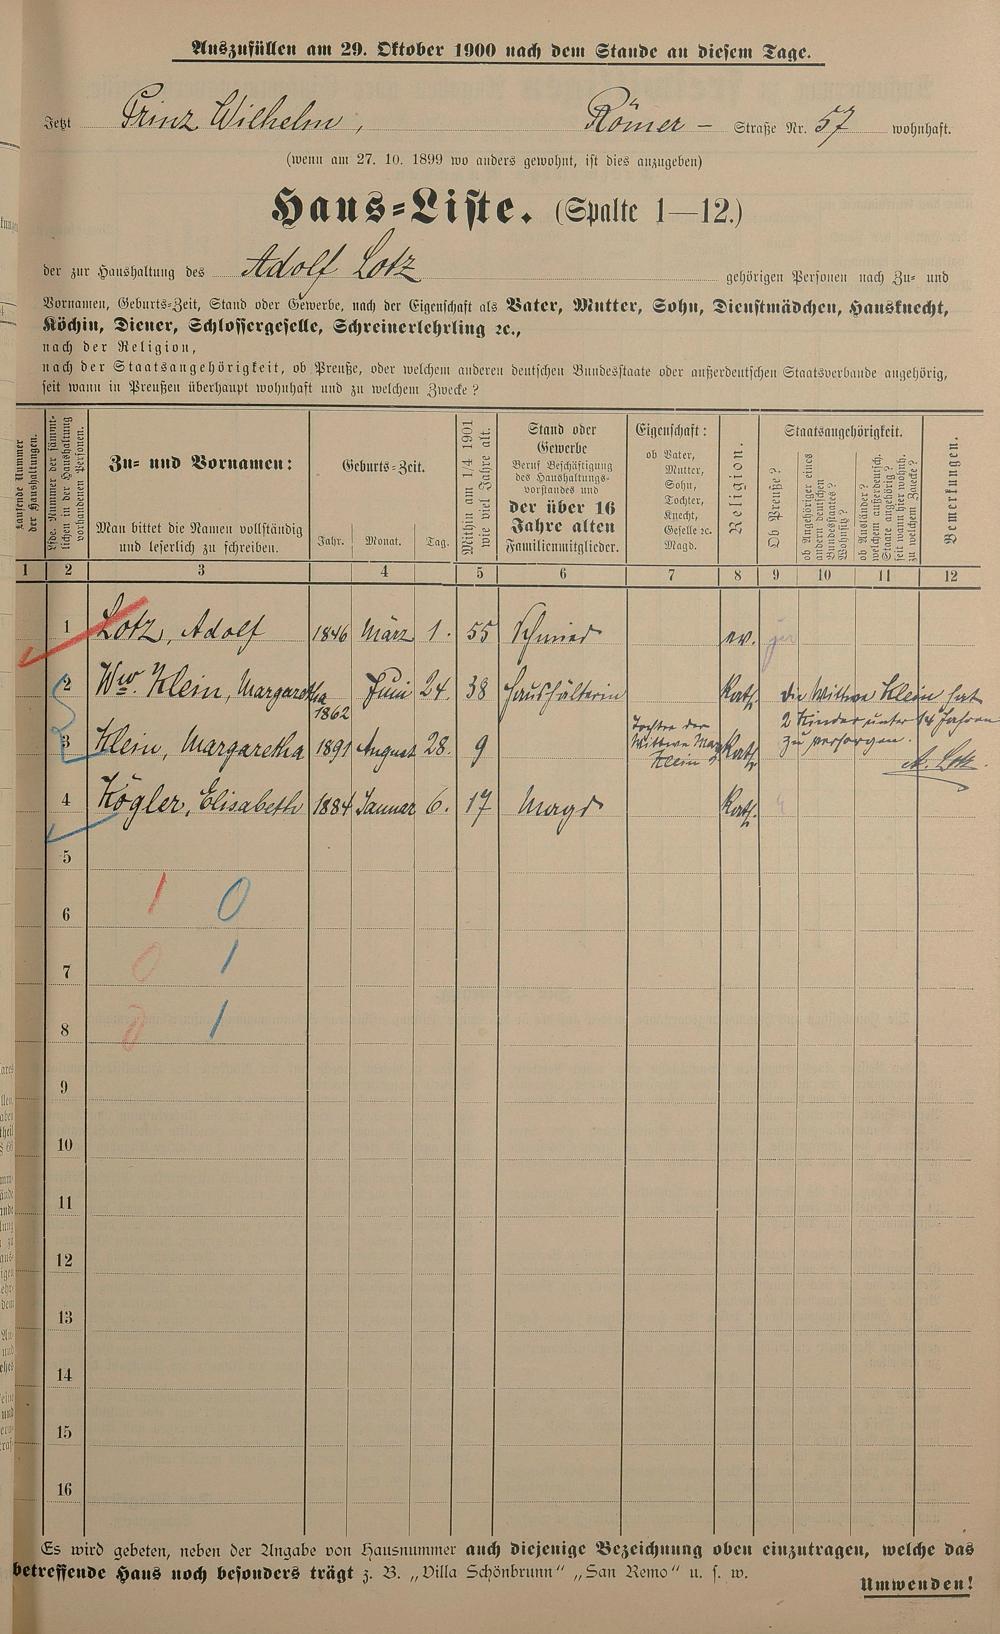 Auszufüllen am 29. Oktober 1900 nach dem Stande an diesem Tage.
Jetzt Prinz Wilhelm, Römer- Straße Nr. 57 wohnhaft.
(wenn am 27. 10. 1899 wo anders gewohnt, ist dies anzugeben)
Haus-Liste. (Spalte 1—12.)
der zur Haushaltung des Adolf Lotz gehörigen Personen nach Zu- und
Vornamen, Geburts-Zeit, Stand oder Gewerbe, nach der Eigenschaft als Vater, Mutter, Sohn, Dienstmädchen, Hausknecht,
Köchin, Diener, Schlossergeselle, Schreinerlehrling ꝛc.,
nach der Religion,
nach der Staatsangehörigkeit, ob Preuße, oder welchem anderen deutschen Bundesstaate oder außerdeutschen Staatsverbande angehörig,
seit wann in Preußen überhaupt wohnhaft und zu welchem Zwecke?
Laufende Nummer der Haushaltungen.
Lfde. Nummer der sämmtlichen in der Haushaltung vorhandenen Personen.
Zu- und Vornamen:
Man bittet die Namen vollständig
und leserlich zu schreiben.
Geburts-Zeit.
Jahr. Monat. Tag.
Mithin am 1/4 1901 wie viel Jahre alt.
Stand oder
Gewerbe
Beruf Beschäftigung
des Haushaltungs-
vorstandes und
der über 16
Jahre alten
Familienmitglieder.
Eigenschaft:
ob Vater,
Mutter,
Sohn,
Tochter,
Knecht,
Geselle ꝛc.
Magd.
Religion
Staatsangehörigkeit.
Ob Preuße?
ob Angehöriger eines andern deutschen Bundesstaates? Wohnsitz?
ob Ausländer? welchem außerdeutsch. Staate angehörig? seit wann hier wohnh. zu welchem Zwecke?
Bemerkungen.
1 2 3 4 5 6 7 8 9 10 11 12
1 Lotz, Adolf 1846 März 1. 55 Schmied ev. ja
2 Ww. Klein, Margaretha 1862 Juni 24. 38 Haushälterin Kath. Die Wittwe Klein hat
2 Kinder unter 14 Jahren
zu versorgen.
A. Lotz.
3 Klein, Margaretha 1891 August 28. 9 Tochter der
Wittwe Marg.
Klein Kath.
4 Kögler, Elisabeth 1884 Januar 6. 17 Magd Kath.
5
6 1 0
7 0 1
8 0 1
9
10
11
12
13
14
15
16
Es wird gebeten, neben der Angabe von Hausnummer auch diejenige Bezeichnung oben einzutragen, welche das
betreffende Haus noch besonders trägt z. B. „Villa Schönbrunn“ „San Remo“ u. s. w.
Umwenden!